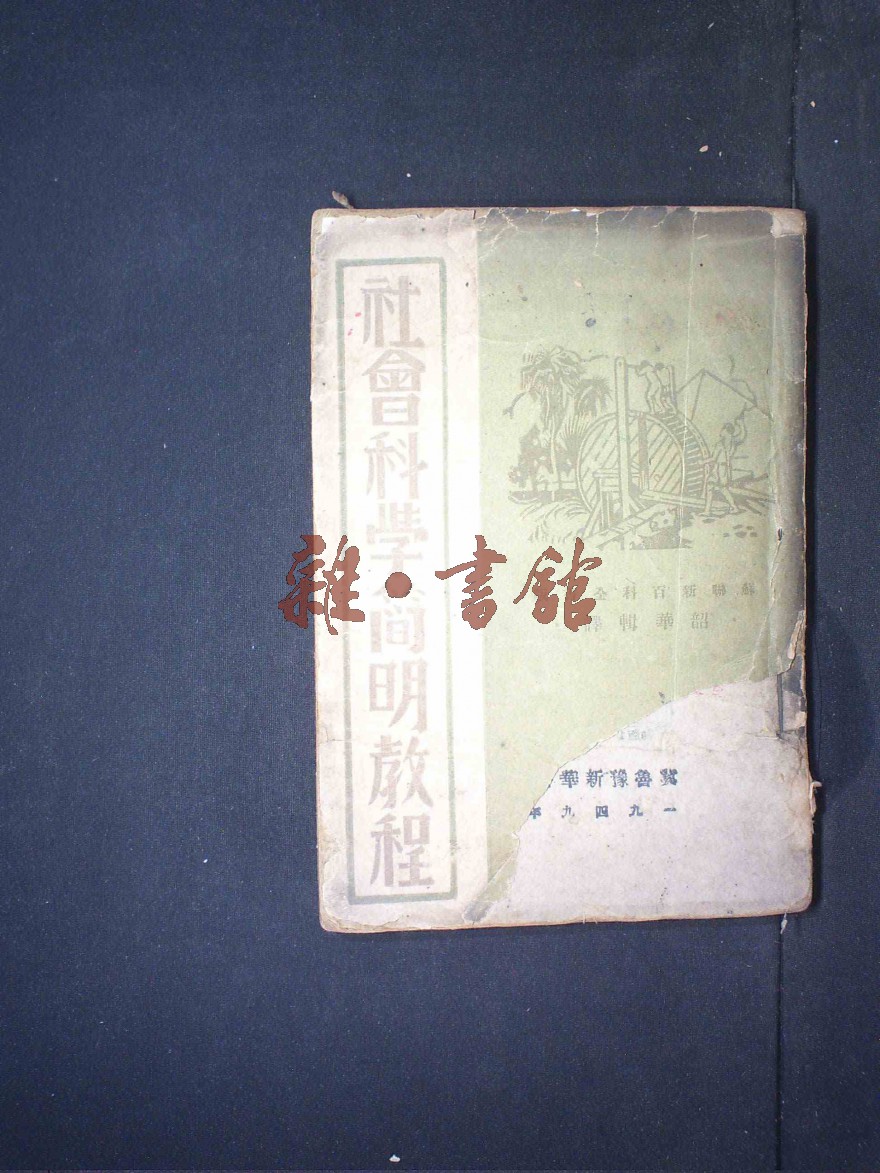 社會科學簡明教程
蘇聯新百科全
韶華輯譯
冀魯豫新華
一九四九年
雜·書館